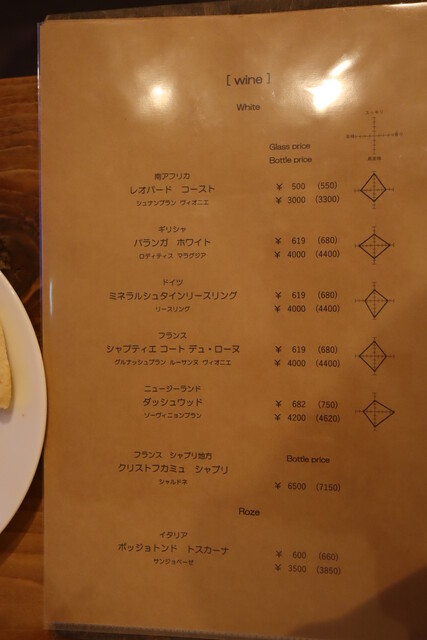 [ wine ]
White
Glass price
Bottle price
南アフリカ
レオパード コースト
シュナンブラン ヴィオニエ
¥ 500 (550)
¥ 3000 (3300)
ギリシャ
パランガ ホワイト
ロディティス マラグジア
¥ 619 (680)
¥ 4000 (4400)
ドイツ
ミネラルシュタインリースリング
リースリング
¥ 619 (680)
¥ 4000 (4400)
フランス
シャプティエ コート デュ・ローヌ
グルナッシュブラン ルーサンヌ ヴィオニエ
¥ 619 (680)
¥ 4000 (4400)
ニュージーランド
ダッシュウッド
ソーヴィニョンブラン
¥ 682 (750)
¥ 4200 (4620)
フランス シャブリ地方
クリストフカミュ シャブリ
シャルドネ
Bottle price
¥ 6500 (7150)
Roze
イタリア
ポッジョトンド トスカーナ
サンジョベーゼ
¥ 600 (660)
¥ 3500 (3850)